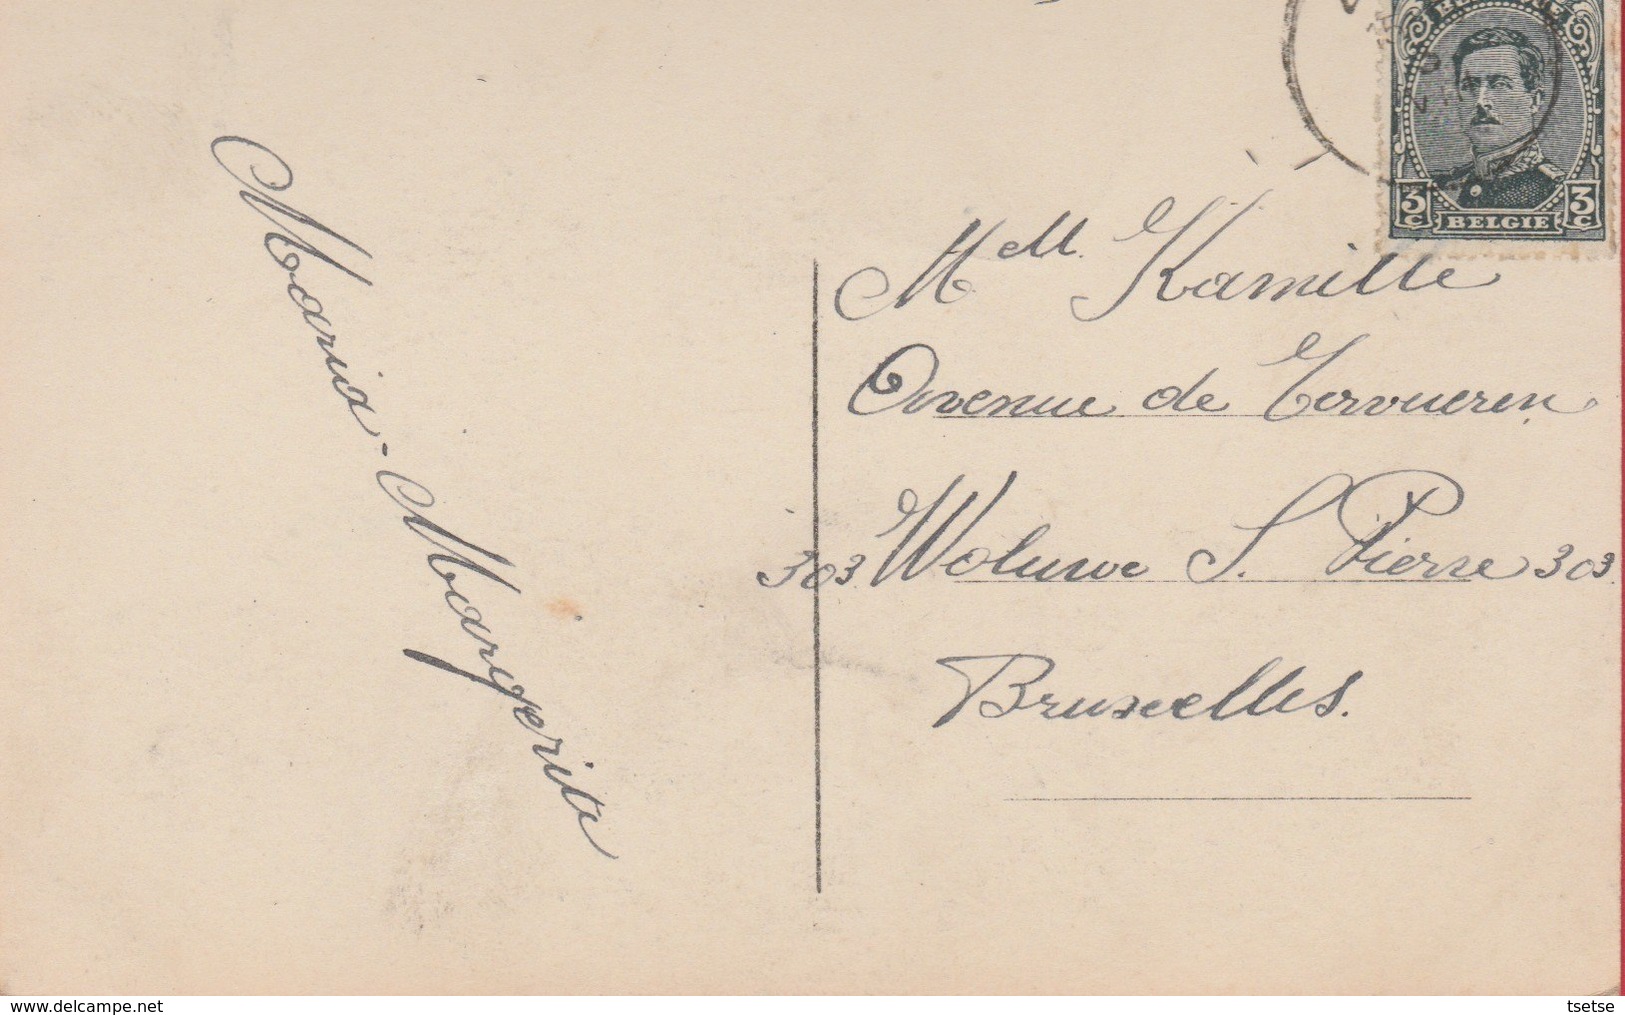 Maria-Margerite
Mell. Kamille
Avenue de Tervueren
303 Woluwe S. Pierre 303
Bruxelles.
3C BELGIE 3C
delcampe.net
tsetse